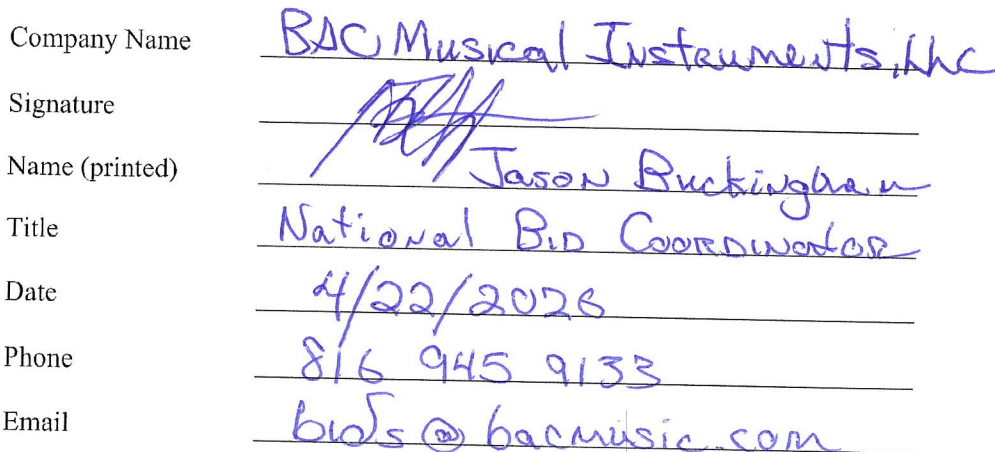 Company Name BAC Musical Instruments, LLC
Signature
Name (printed) Jason Buckingham
Title National Bid Coordinator
Date 4/22/2026
Phone 816 945 9133
Email bids@bacmusic.com